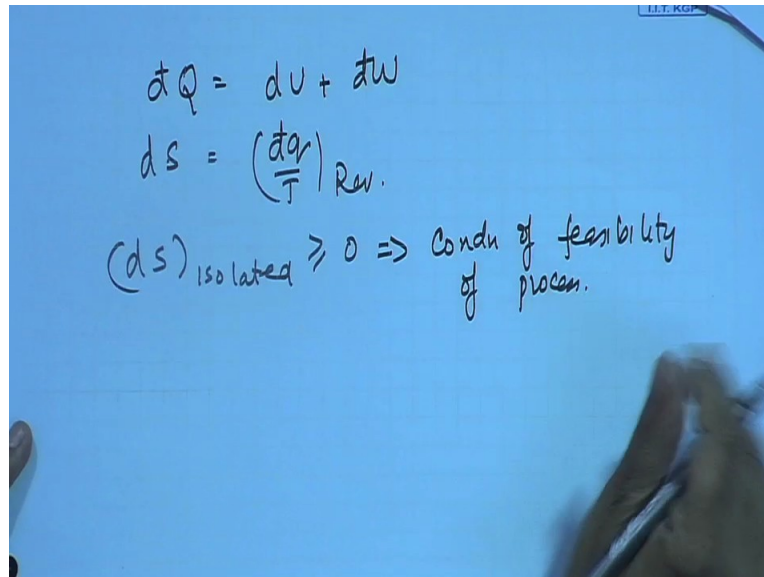 I.I.T. KGP
đQ = dU + đW
dS = (đq/T) Rev.
(dS) isolated ≥ 0 => Condn of feasibility
of process.